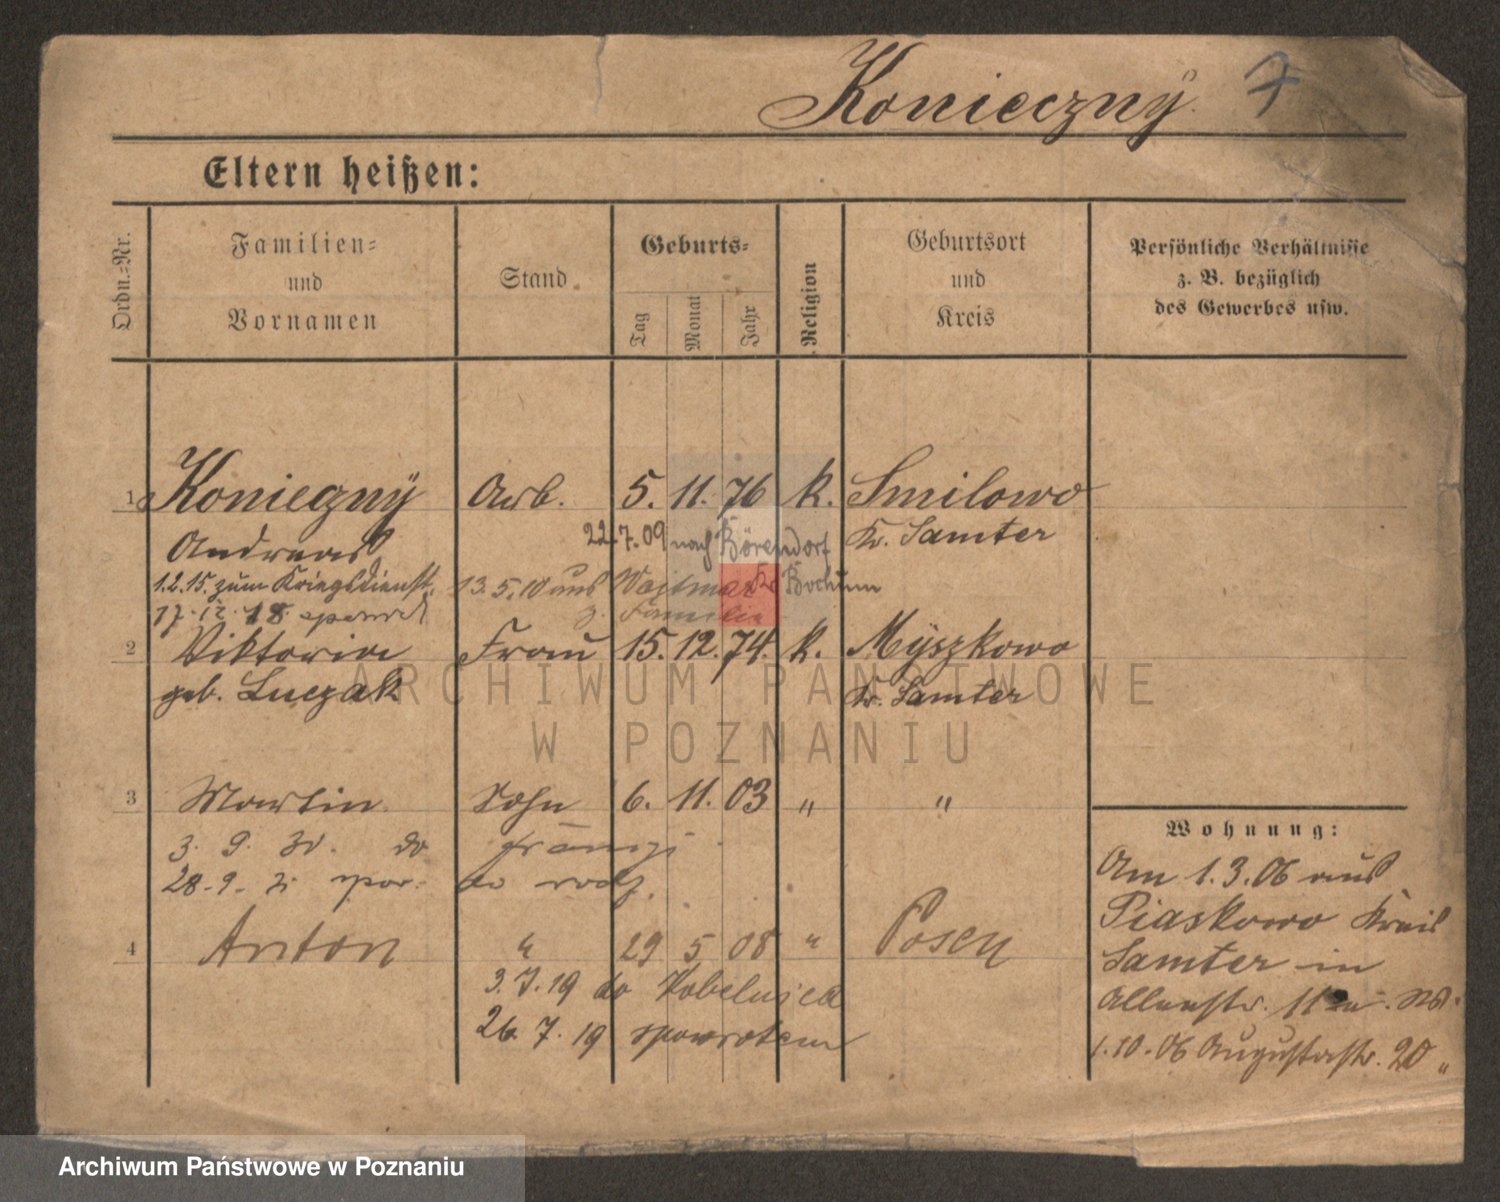 Konieczny 7
Eltern heißen:
Ordn.-Nr.
Familien-
und
Vornamen
Stand
Geburts-
Tag
Monat
Jahr
Religion
Geburtsort
und
Kreis
Persönliche Verhältnisse
z. B. bezüglich
des Gewerbes usw.
1 Konieczny Arb. 5. 11. 76 k. Smilowo
Andreas 22.7.09 nach Börendorf Kr. Samter
1.2.15. zum Kriegsdienst 13.5.10 aus Kr. Bochum
17.12.18. z. Familie
2 Viktoria Frau 15. 12. 74. k. Myszkowo
geb. Luczak Kr. Samter
3 Martin Sohn 6. 11. 03 " "
3. 9. do
28.9.
4 Anton " 29 5 08 " Posen
3.7.19 do Kobelnica
26.7.19 spowrotem
Wohnung:
Am 1.3.06 aus
Piaskowo Kreis
Samter in
1.10.06 Augustastr. 20 "
ARCHIWUM PAŃSTWOWE
W POZNANIU
Archiwum Państwowe w Poznaniu